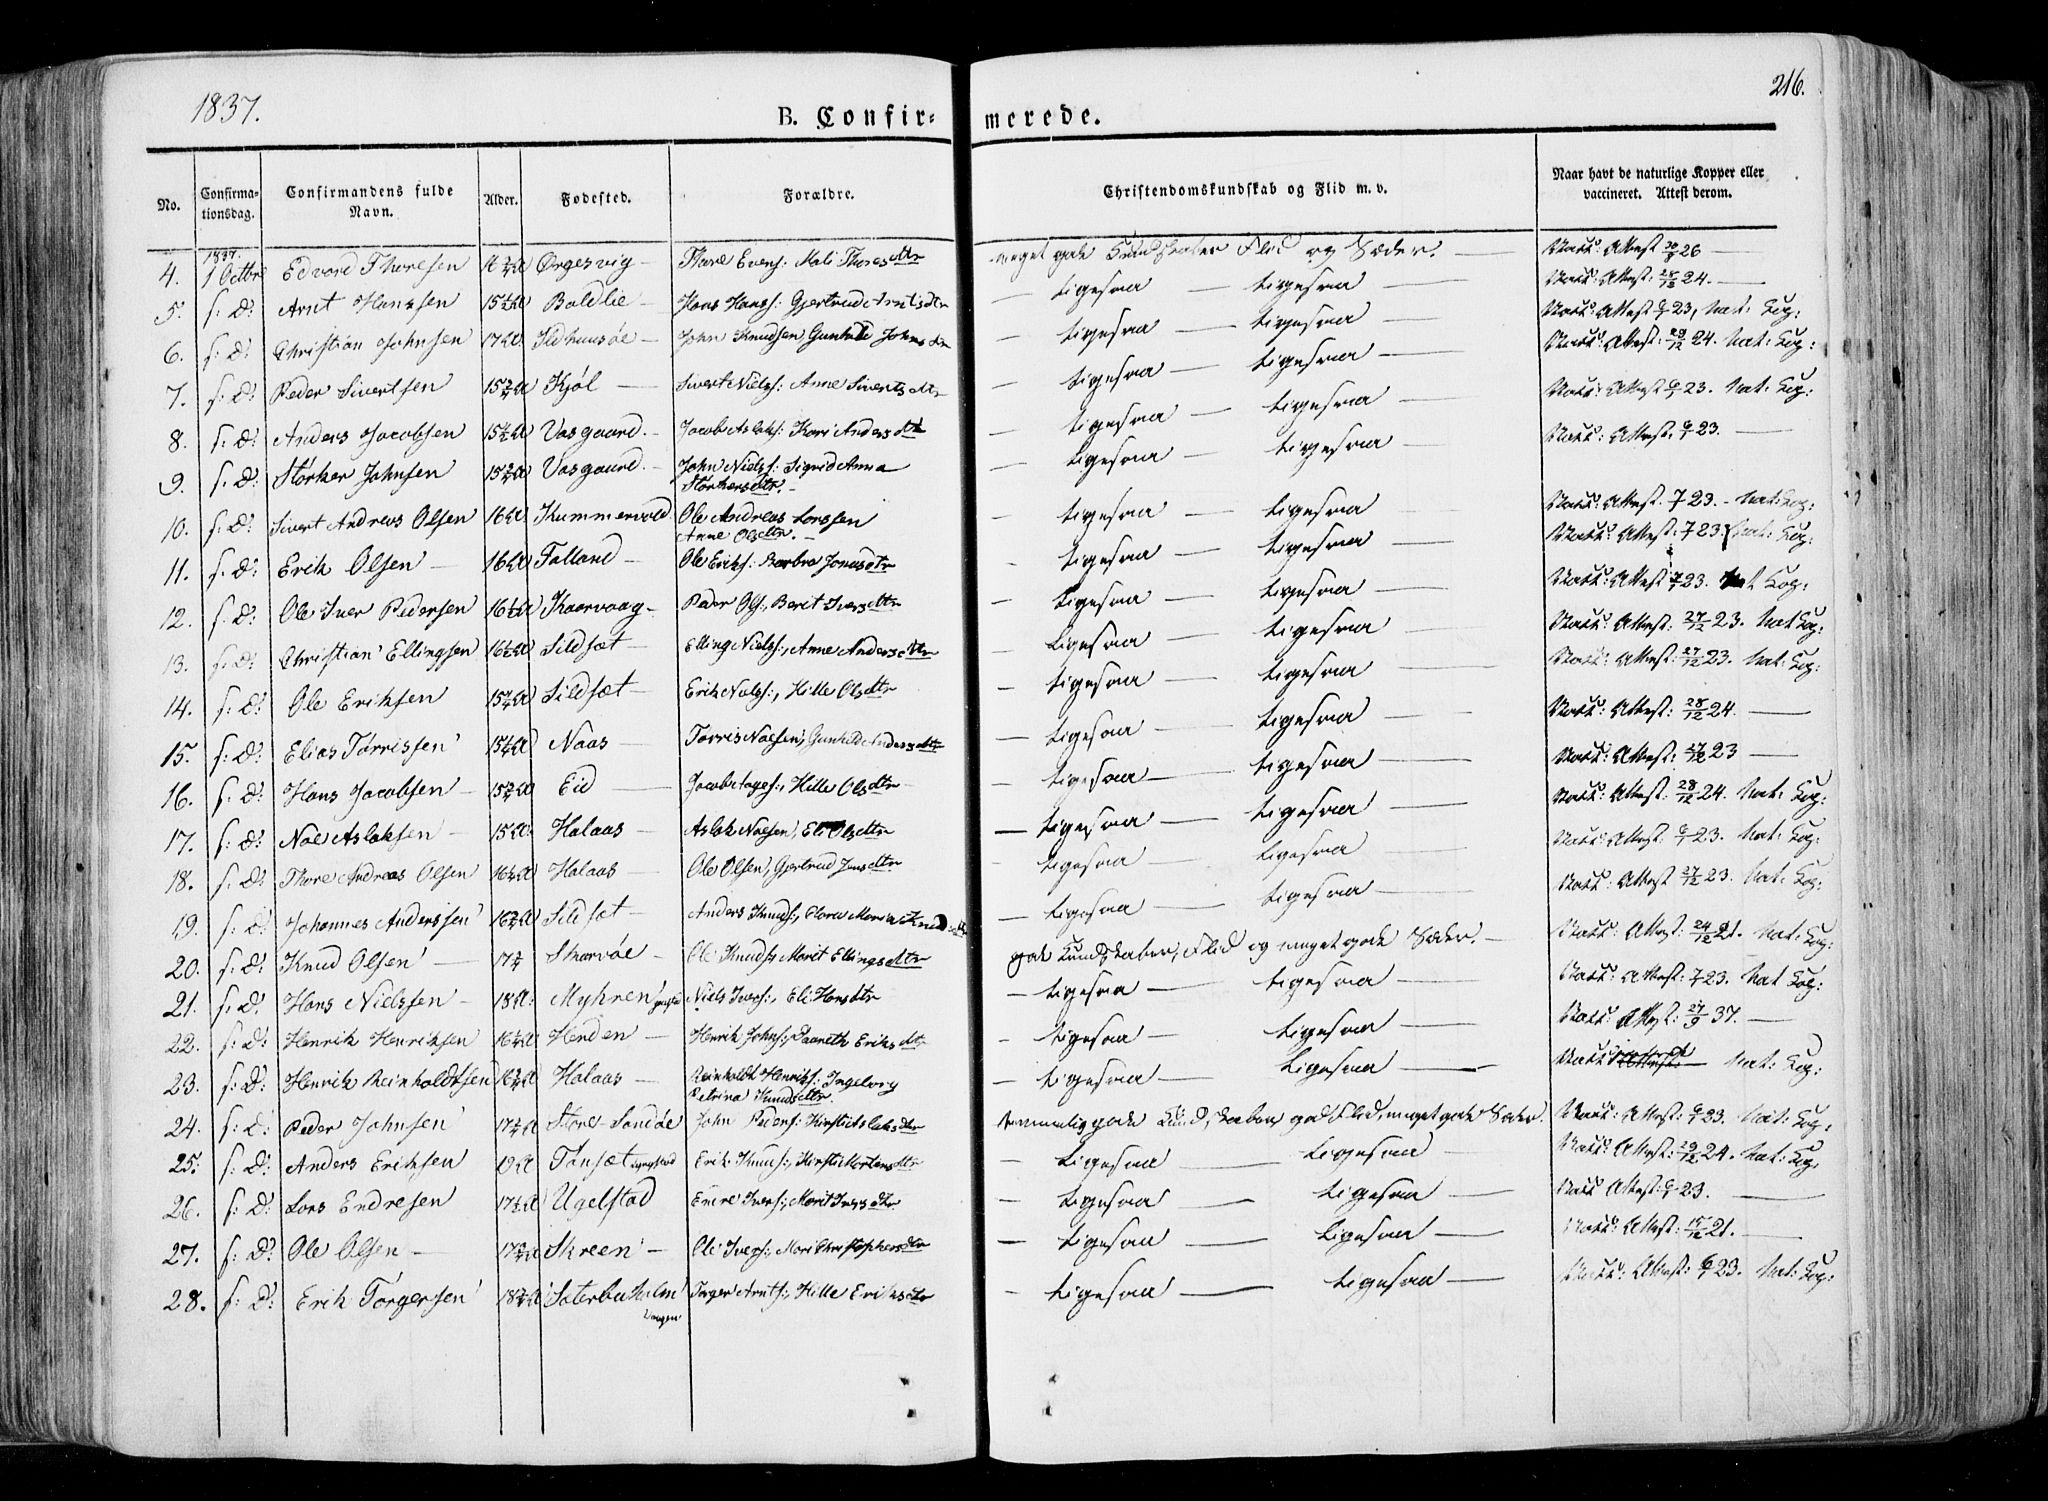 1837.
B. Confir-
merede.
216.
No.
Confirma-
tionsdag.
Confirmandens fulde
Navn.
Alder.
Fødested.
Forældre.
Christendomskundskab og Flid m. v.
Naar havt de naturlige Kopper eller
vaccineret. Attest derom.
1837.
4. 1 Octbr Edvard Thoresen 16 Ørgesvig – Thore Evens: Mali Thoresdtr meget gode Kundskaber Flid og Sæder. — Vacc: Attest 26 —
5. s: D: Arnt Hanssen 15 Boldlie – Hans Hanss: Gjertrud Arntsdtr — ligesaa — ligesaa — Vacc: Attest: 24. —
6. s: D: Christian Johnsen 17 Ildhuusøe – John Knudsen, Gunhild Johnsdtr — ligesaa — ligesaa — Vacc: Attest 23, Nat: Kop:
7. s: D: Peder Sivertsen 15 Kjøl — Sivert Niels: Anne Sivertsdtr — ligesaa — ligesaa — Vacc: Attest: 29/12 24. Nat: Kop:
8. s: D: Anders Jacobsen 15 Vasgaard. – Jacob Aslaks: Kari Andersdtr — ligesaa — ligesaa — Vacc: Attest 23. Nat: Kop:
9. s: D: Størker Johnsen 15 Vasgaard. – John Niels: Sigrid Anna
Størkersdtr. – — ligesaa — ligesaa — Vacc: Attest: 23. —
10. s: D: Sivert Andreas Olsen 16 Kummervold Ole Andreas Larssen
Anne Olsdtr. – — ligesaa — ligesaa Vacc: Attest. 23. – Nat: Kop:
11. s: D: Erik Olsen – 16 Folland – Ole Eriks: Barbra Jonasdtr — ligesaa — ligesaa — Vacc: Attest: 23. Nat: Kop:
12. s: D: Ole Iver Pedersen 16 Kaarvaag – Peder Ols:, Berit Iversdtr — ligesaa — ligesaa — Vacc: Attest 23. Kop:
13. s: D: Christian Ellingsen 16 Sildsæt – Elling Niels:, Anne Andersdtr — ligesaa — ligesaa — Vacc: Attest: 27/12 23. Nat Kop:
14. s: D: Ole Eriksen 15 Sildsæt – Erik Niels:, Hille Olsdtr — ligesaa — ligesaa — Vacc: Attest: 27/12 23. Nat: Kop:
15. s: D: Elias Tørrissen 15 Naas – Tørris Noesen, Gunhild Andersdtr — ligesaa — ligesaa — Vacc: Attest: 28/12 24. —
16. s: D: Hans Jacobsen – 15 Eid — Jacob Aages:, Hille Olsdtr — ligesaa — ligesaa — Vacc: Attest: 27/12 23 —
17. s: D: Noe Aslaksen – 15 Halaas – Aslak Noesen, Eli Olsdtr — ligesaa — ligesaa — Vacc: Attest: 28/12 24. Nat: Kop:
18. s: D: Thore Andreas Olsen 16 Halaas – Ole Olsen, Gjertrud Jensdtr — ligesaa — ligesaa — Vacc: Attest: 23. Nat: Kop:
19. s: D: Johannes Anderssen 16 Sildsæt – Anders Knuds:, Maria — ligesaa — ligesaa — Vacc: Attest 27/12 23. Nat: Kop:
20. s: D: Knud Olsen — 17 Skarvøe – Ole Knuds: Marit Ellingsdtr gode Kundskaber, Flid og meget gode Sæder. — Vacc: Attest: 24/12 21. Nat: Kop:
21. s: D: Hans Nielssen – 18 Myhren Niels Ivers:, Eli Hansdtr — ligesaa — ligesaa — Vacc: Attest: 23. Nat Kop:
22. s: D: Henrik Henriksen 16 Henden – Henrik Johns: Eriksdtr — ligesaa – ligesaa — Vacc: Attest: 27/9 37. —
23. s: D: Henrik Reinholdtsen 16 Halaas – Reinholdt Henriks: Ingeborg
Petrina Knudsdtr. — ligesaa — ligesaa — Vacc: Nat: Kop:
24. s: D: Peder Johnsen 17 Store-Sandøe John Peders: Kirsti Aslaksdtr temmelig gode Kundskaber, god Flid, meget gode Sæder. Vacc: Attest: 23. Nat: Kop:
25. s: D: Anders Eriksen 19 Tønsæt Erik Knuds:, Kirsti Mortensdtr — ligesaa — ligesaa — Vacc: Attest: 29/12 24. Nat: Kop:
26. s: D: Lars Endresen 17 Ugelstad Endre Ivers:, Marit Iversdtr — ligesaa — ligesaa — Vacc: Attest: 23. —
27. s: D: Ole Olsen – 17 Skreen – Ole Ivers:, Mari Christophersdtr — ligesaa — ligesaa — Vacc: Attest: 15/12 21. —
28. s: D: Erik Torgersen 18 Saterbuholm
Vaagen Torger Arnts:, Hille Eriksdtr — ligesaa — ligesaa — Vacc: Attest: 23. Nat: Kop: